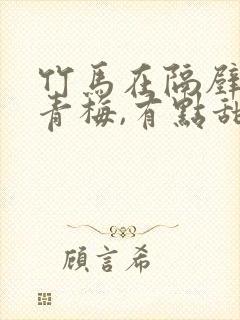 竹馬在隔壁
青梅,有點甜
顧言希